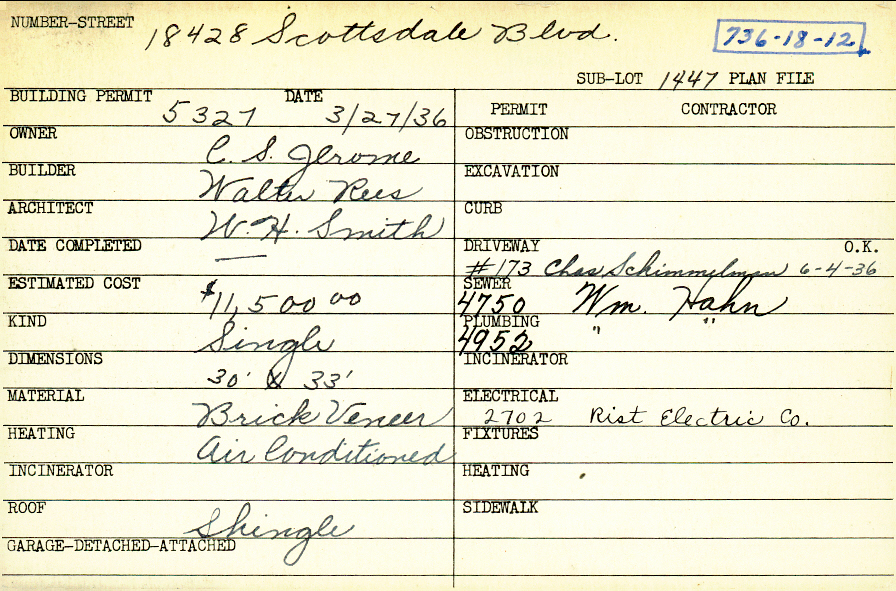 NUMBER-STREET 18428 Scottsdale Blvd.
736-18-12
SUB-LOT 1447 PLAN FILE
BUILDING PERMIT 5327 DATE 3/27/36
PERMIT CONTRACTOR
OWNER C. S. Jerome
OBSTRUCTION
BUILDER Walter Rees
EXCAVATION
ARCHITECT W. H. Smith
CURB
DATE COMPLETED —
DRIVEWAY O.K.
#173 Chas Schimmelman 6-4-36
ESTIMATED COST $11,500 00
SEWER 4750 Wm. Hahn
KIND Single
PLUMBING 4952 " "
DIMENSIONS 30' X 33'
INCINERATOR
MATERIAL Brick Veneer
ELECTRICAL 2702 Rist Electric Co.
HEATING Air Conditioned
FIXTURES
INCINERATOR
HEATING
ROOF Shingle
SIDEWALK
GARAGE-DETACHED-ATTACHED